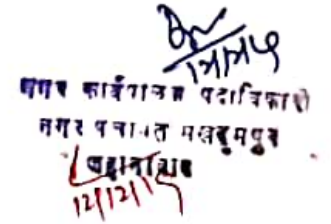 नगर कार्यपालक पदाधिकारी
नगर पंचायत मखदुमपुर
जहानाबाद
12/12/15